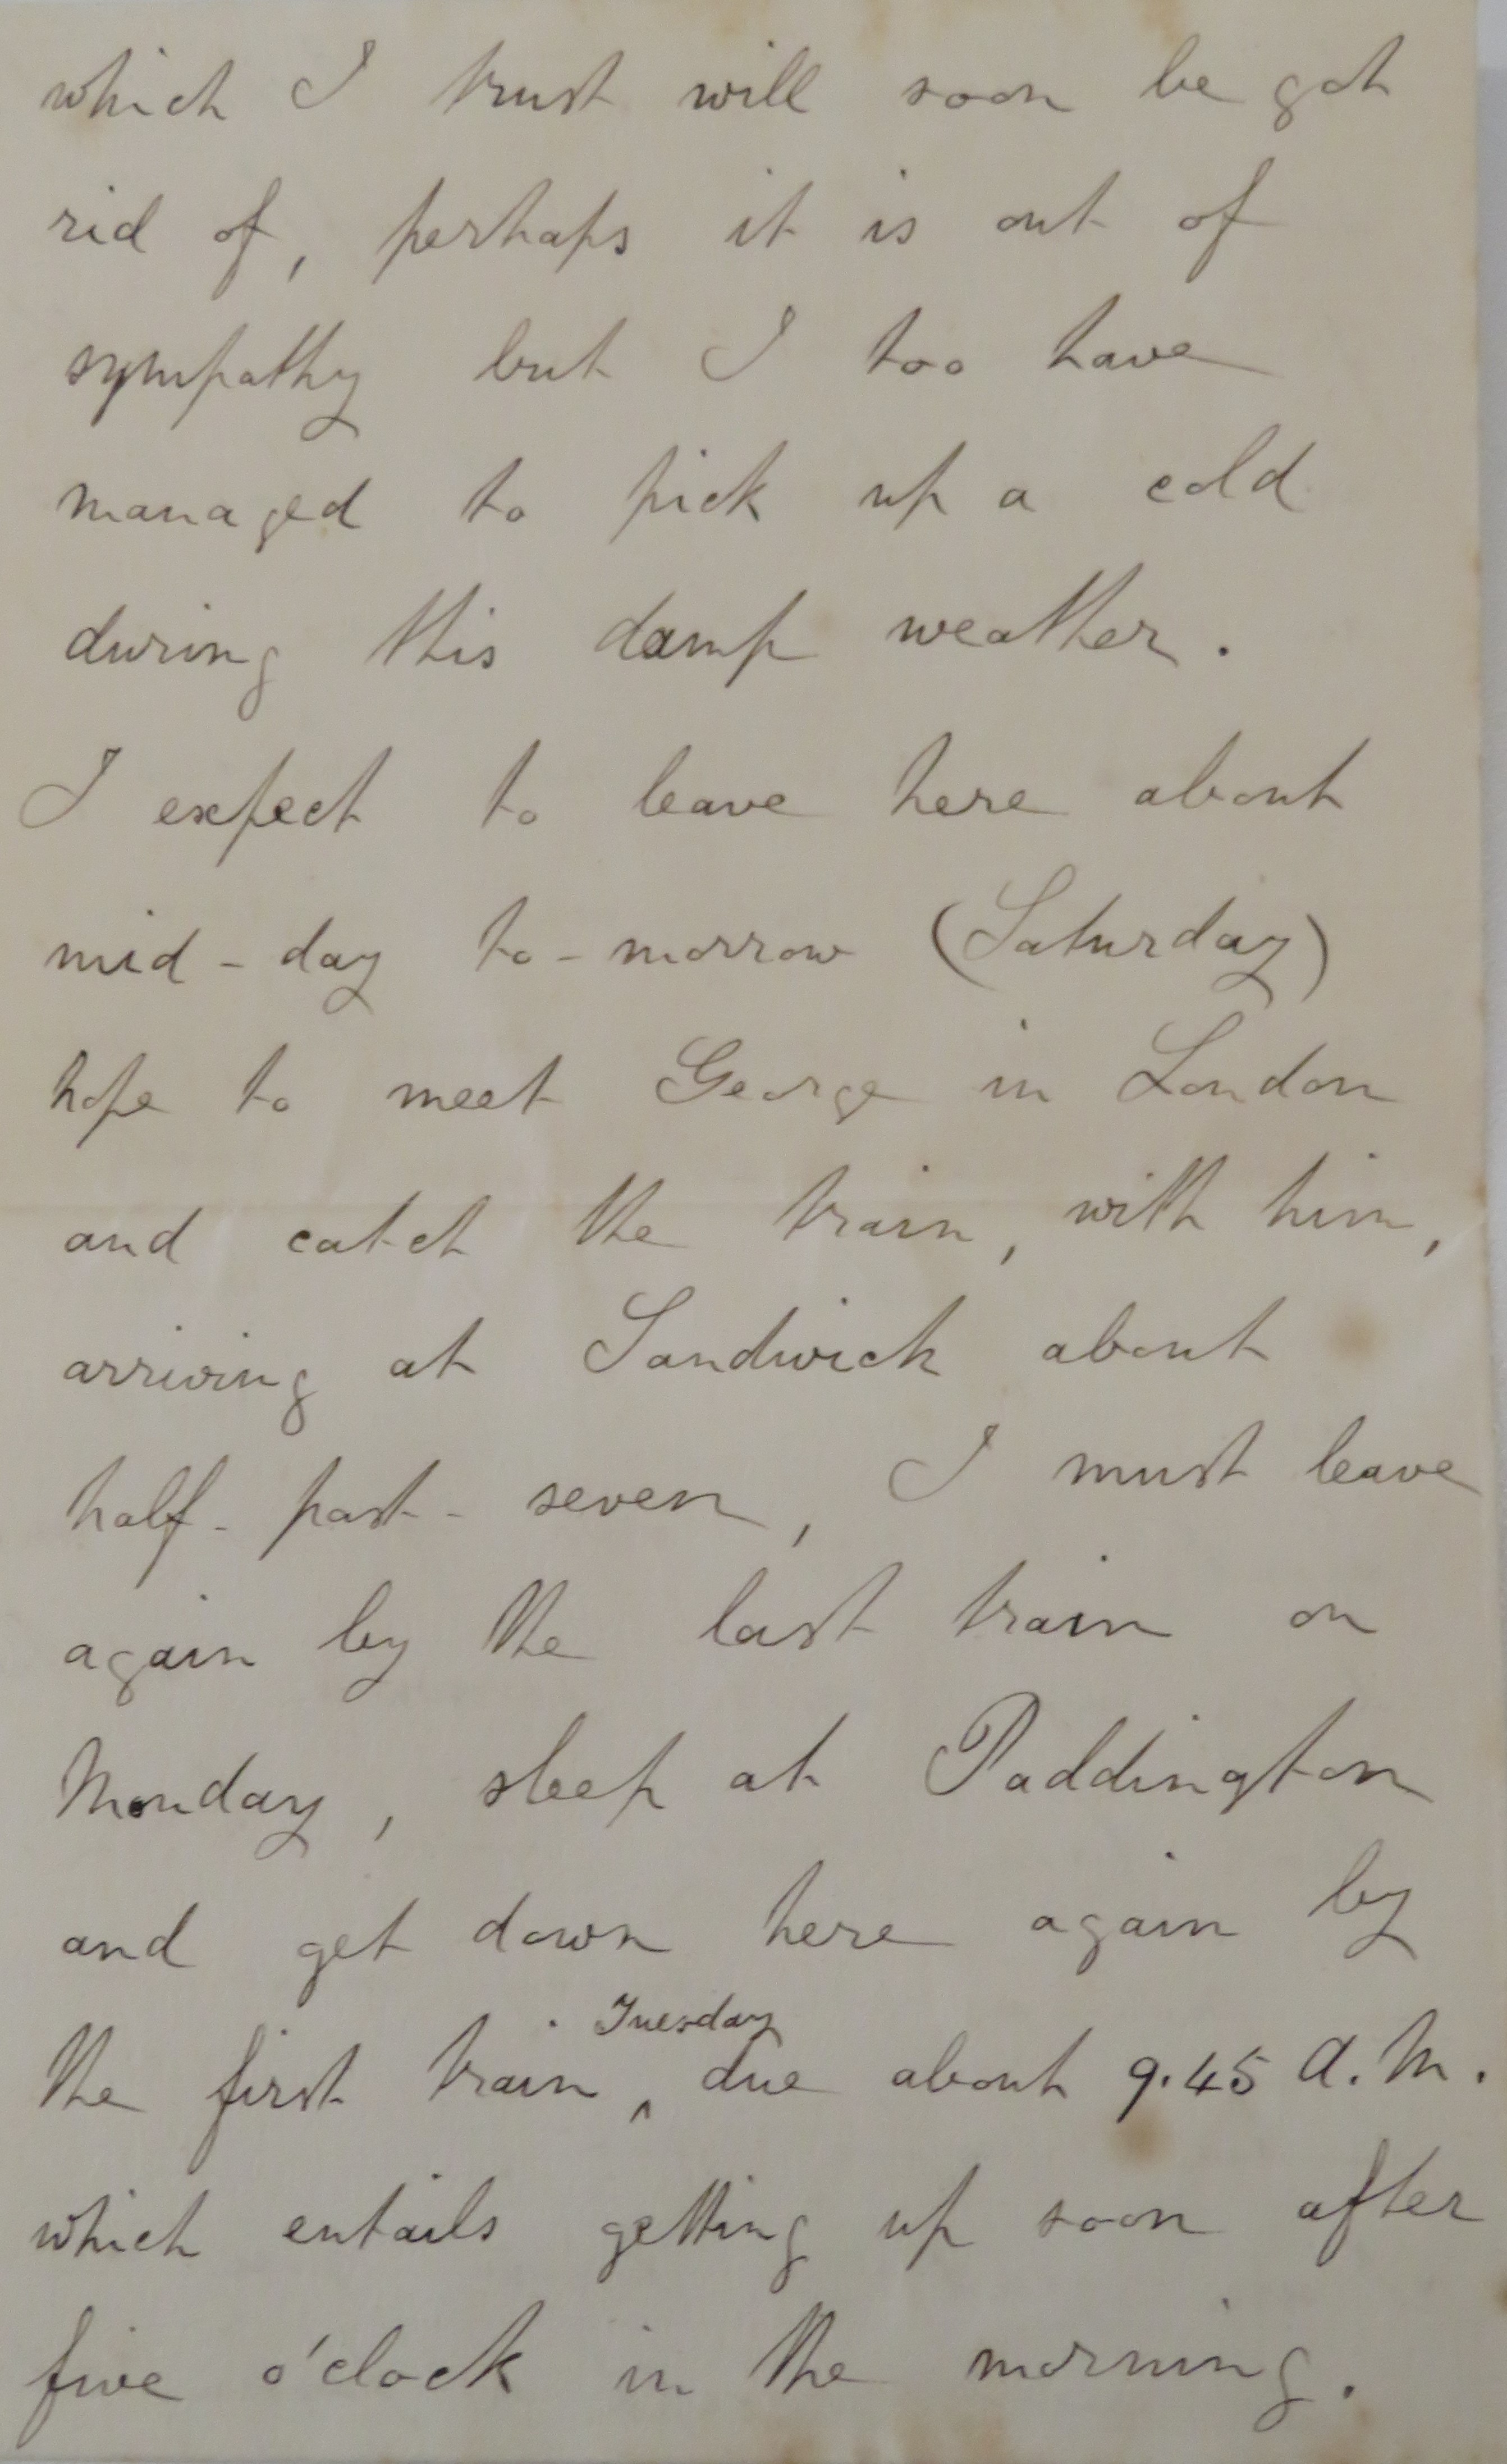 which I trust will soon be got
rid of, perhaps it is out of
sympathy but I too have
managed to pick up a cold
during this damp weather.
I expect to leave here about
mid-day to-morrow (Saturday)
hope to meet George in London
and catch the train, with him,
arriving at Sandwich about
half-past-seven, I must leave
again by the last train on
Monday, sleep at Paddington
and get down here again by
Tuesday
the first train ^ due about 9.45 A.M.
which entails getting up soon after
five o'clock in the morning.